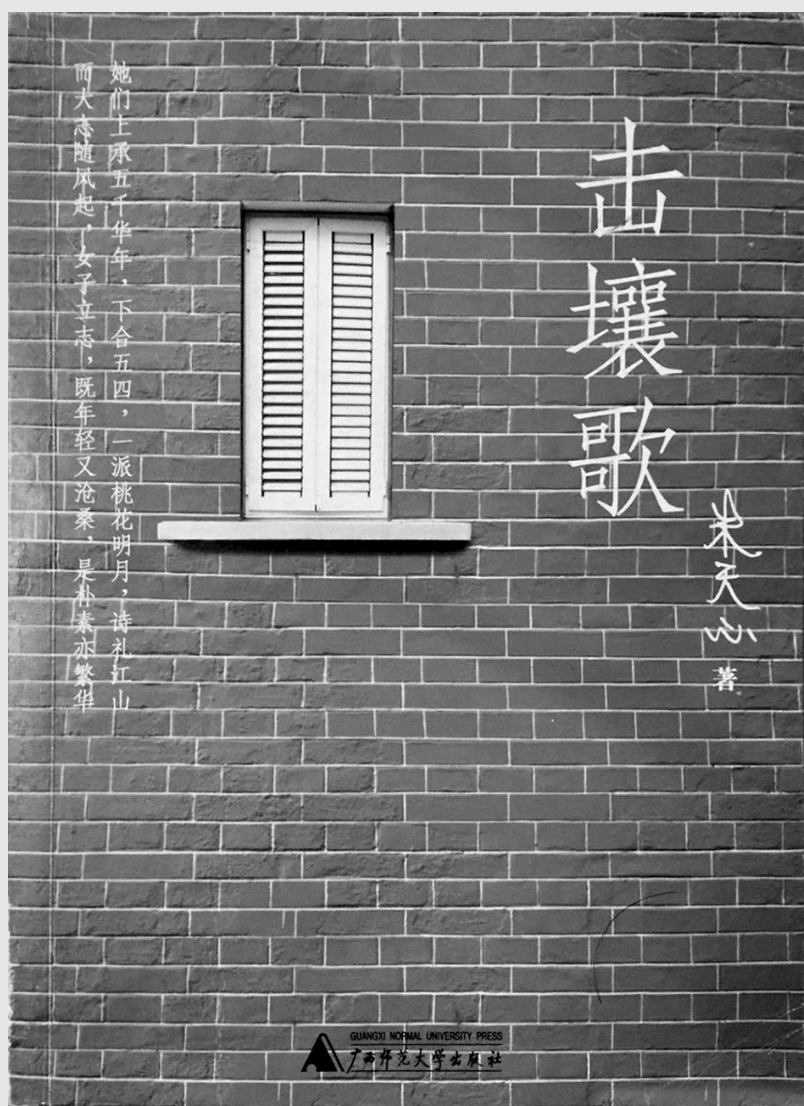 击壤歌
朱天心
著
她们上承五千华年，下合五四，一派桃花明月，诗礼江山
而大志随风起，女子立志，既年轻又沧桑，是朴素亦繁华
GUANGXI NORMAL UNIVERSITY PRESS
广西师范大学出版社